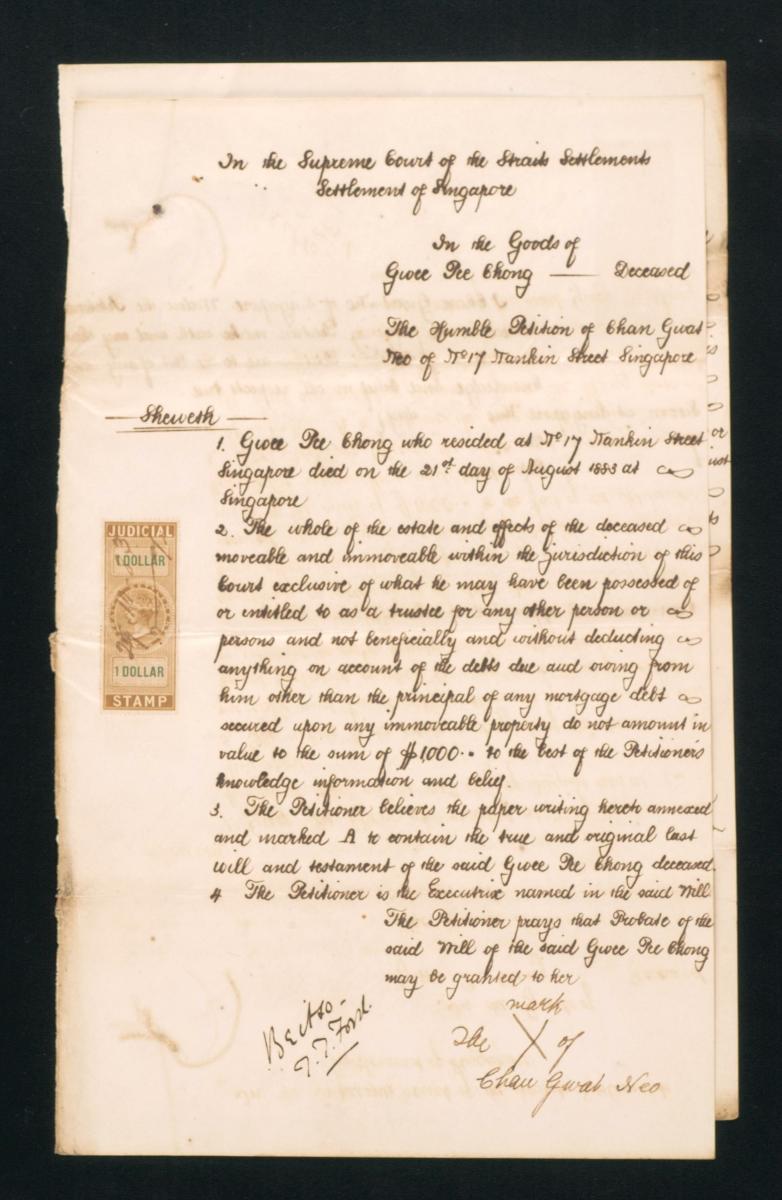 In the Supreme Court of the Straits Settlements
Settlement of Singapore
In the Goods of
Gwee Pee Chong — Deceased
The Humble Petition of Chan Gwat
Neo of No 17 Nankin Street Singapore
Sheweth
1. Gwee Pee Chong who resided at No 17 Nankin Street
Singapore died on the 21st day of August 1883 at
Singapore
2. The whole of the estate and effects of the deceased
moveable and immoveable within the jurisdiction of this
Court exclusive of what he may have been possessed of
or intitled to as a trustee for any other person or
persons and not beneficially and without deducting
anything on account of the debts due and owing from
him other than the principal of any mortgage debt
secured upon any immoveable property do not amount in
value to the sum of $1000.. to the best of the Petitioner's
knowledge information and belief.
3. The Petitioner believes the paper writing hereto annexed
and marked A to contain the true and original last
will and testament of the said Gwee Pee Chong deceased.
4 The Petitioner is the Executrix named in the said Will
The Petitioner prays that Probate of the
said Will of the said Gwee Pee Chong
may be granted to her
mark
The X of
Chan Gwat Neo
Be it so.
T. T. Ford.
JUDICIAL
1 DOLLAR
1 DOLLAR
STAMP